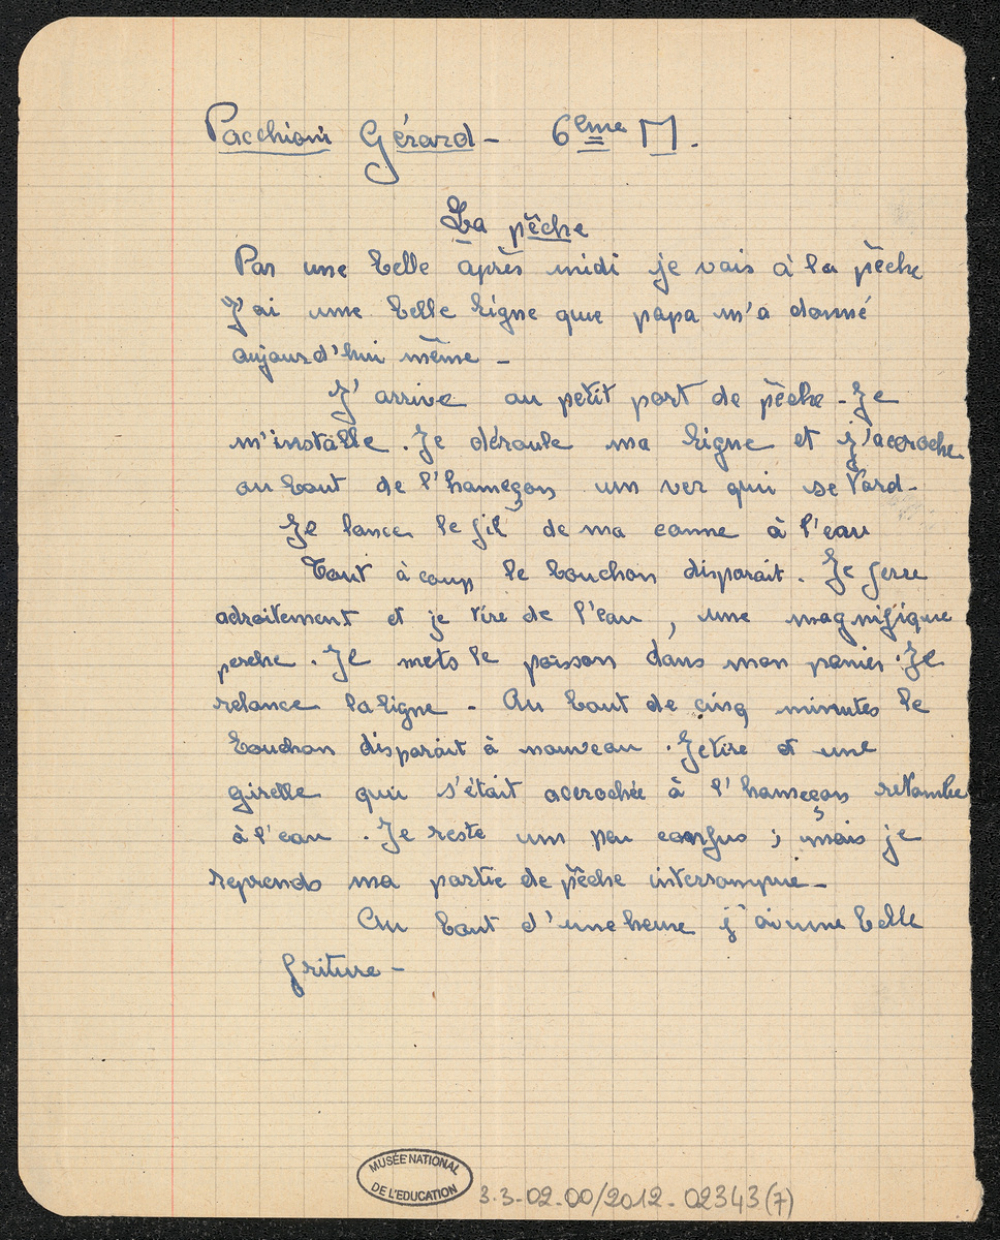 Pacchioni Gérard - 6ème M.
La pêche
Par une belle après midi je vais à la pêche
J'ai une belle ligne que papa m'a donné
aujourd'hui même -
J'arrive au petit port de pêche - Je
m'installe. Je déroule ma ligne et j'accroche
au bout de l'hameçon un ver qui se tord -
Je lance le fil de ma canne à l'eau
Tout à coup le bouchon disparait. Je ferre
adroitement et je tire de l'eau, une magnifique
perche. Je mets le poisson dans mon panier. Je
relance la ligne - Au bout de cinq minutes le
bouchon disparait à nouveau. Je tire et une
girelle qui s'était accrochée à l'hameçon retombe
à l'eau. Je reste un peu confus ; mais je
reprends ma partie de pêche interrompue -
Au bout d'une heure j'ai une belle
friture -
MUSÉE NATIONAL
DE L'EDUCATION
3.3-02.00/2012-02343(7)